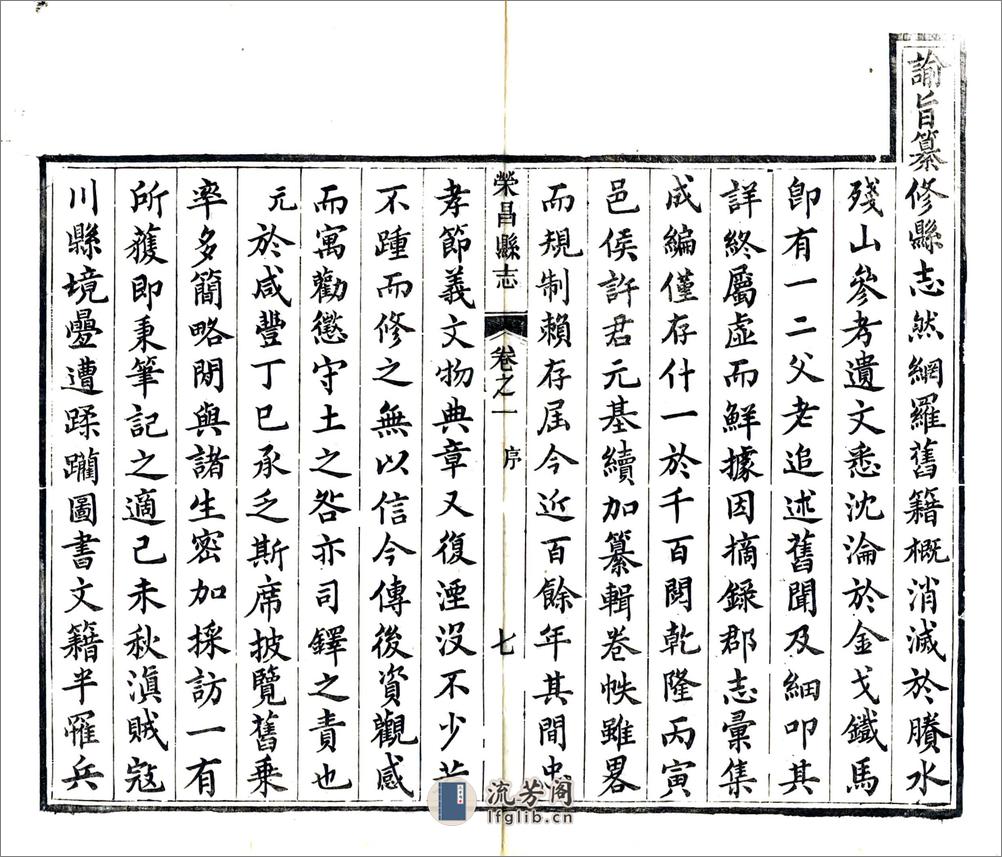 諭旨纂修縣志然網羅舊籍概消滅於賸水
殘山參考遺文悉沈淪於金戈鐵馬
即有一二父老追述舊聞及細叩其
詳終屬虛而鮮據因摘錄郡志彙集
成編僅存什一於千百閱乾隆丙寅
邑侯許君元基續加纂輯卷帙雖畧
而規制賴存屆今近百餘年其間忠
榮昌縣志 卷之一 序 七
孝節義文物典章又復湮没不少若
不踵而修之無以信今傳後資觀感
而寓勸懲守土之咎亦司鐸之責也
元於咸豐丁巳承乏斯席披覽舊乘
率多簡略閒與諸生密加採訪一有
所獲即秉筆記之適己未秋滇賊寇
川縣境疊遭蹂躪圖書文籍半罹兵
流芳阁
lfglib.cn